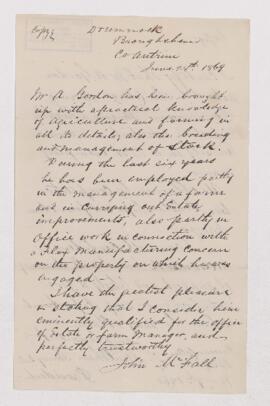 Copy
Drummock
Broughshane
Co Antrim
June 1869
Mr A. Gordon has been brought
up with a practical knowledge
of Agriculture and farming in
all its details, also the breeding
and management of Stock.
During the last six years
he has been employed partly
in the management of a farm
and in carrying out Estate
improvements, also partly in
Office work in connection with
a Flax Manufacturing Concern
on the property on which he was
engaged —
I have the greatest pleasure
in stating that I consider him
eminently qualified for the office
of Estate or farm Manager, and
perfectly trustworthy
John McFall